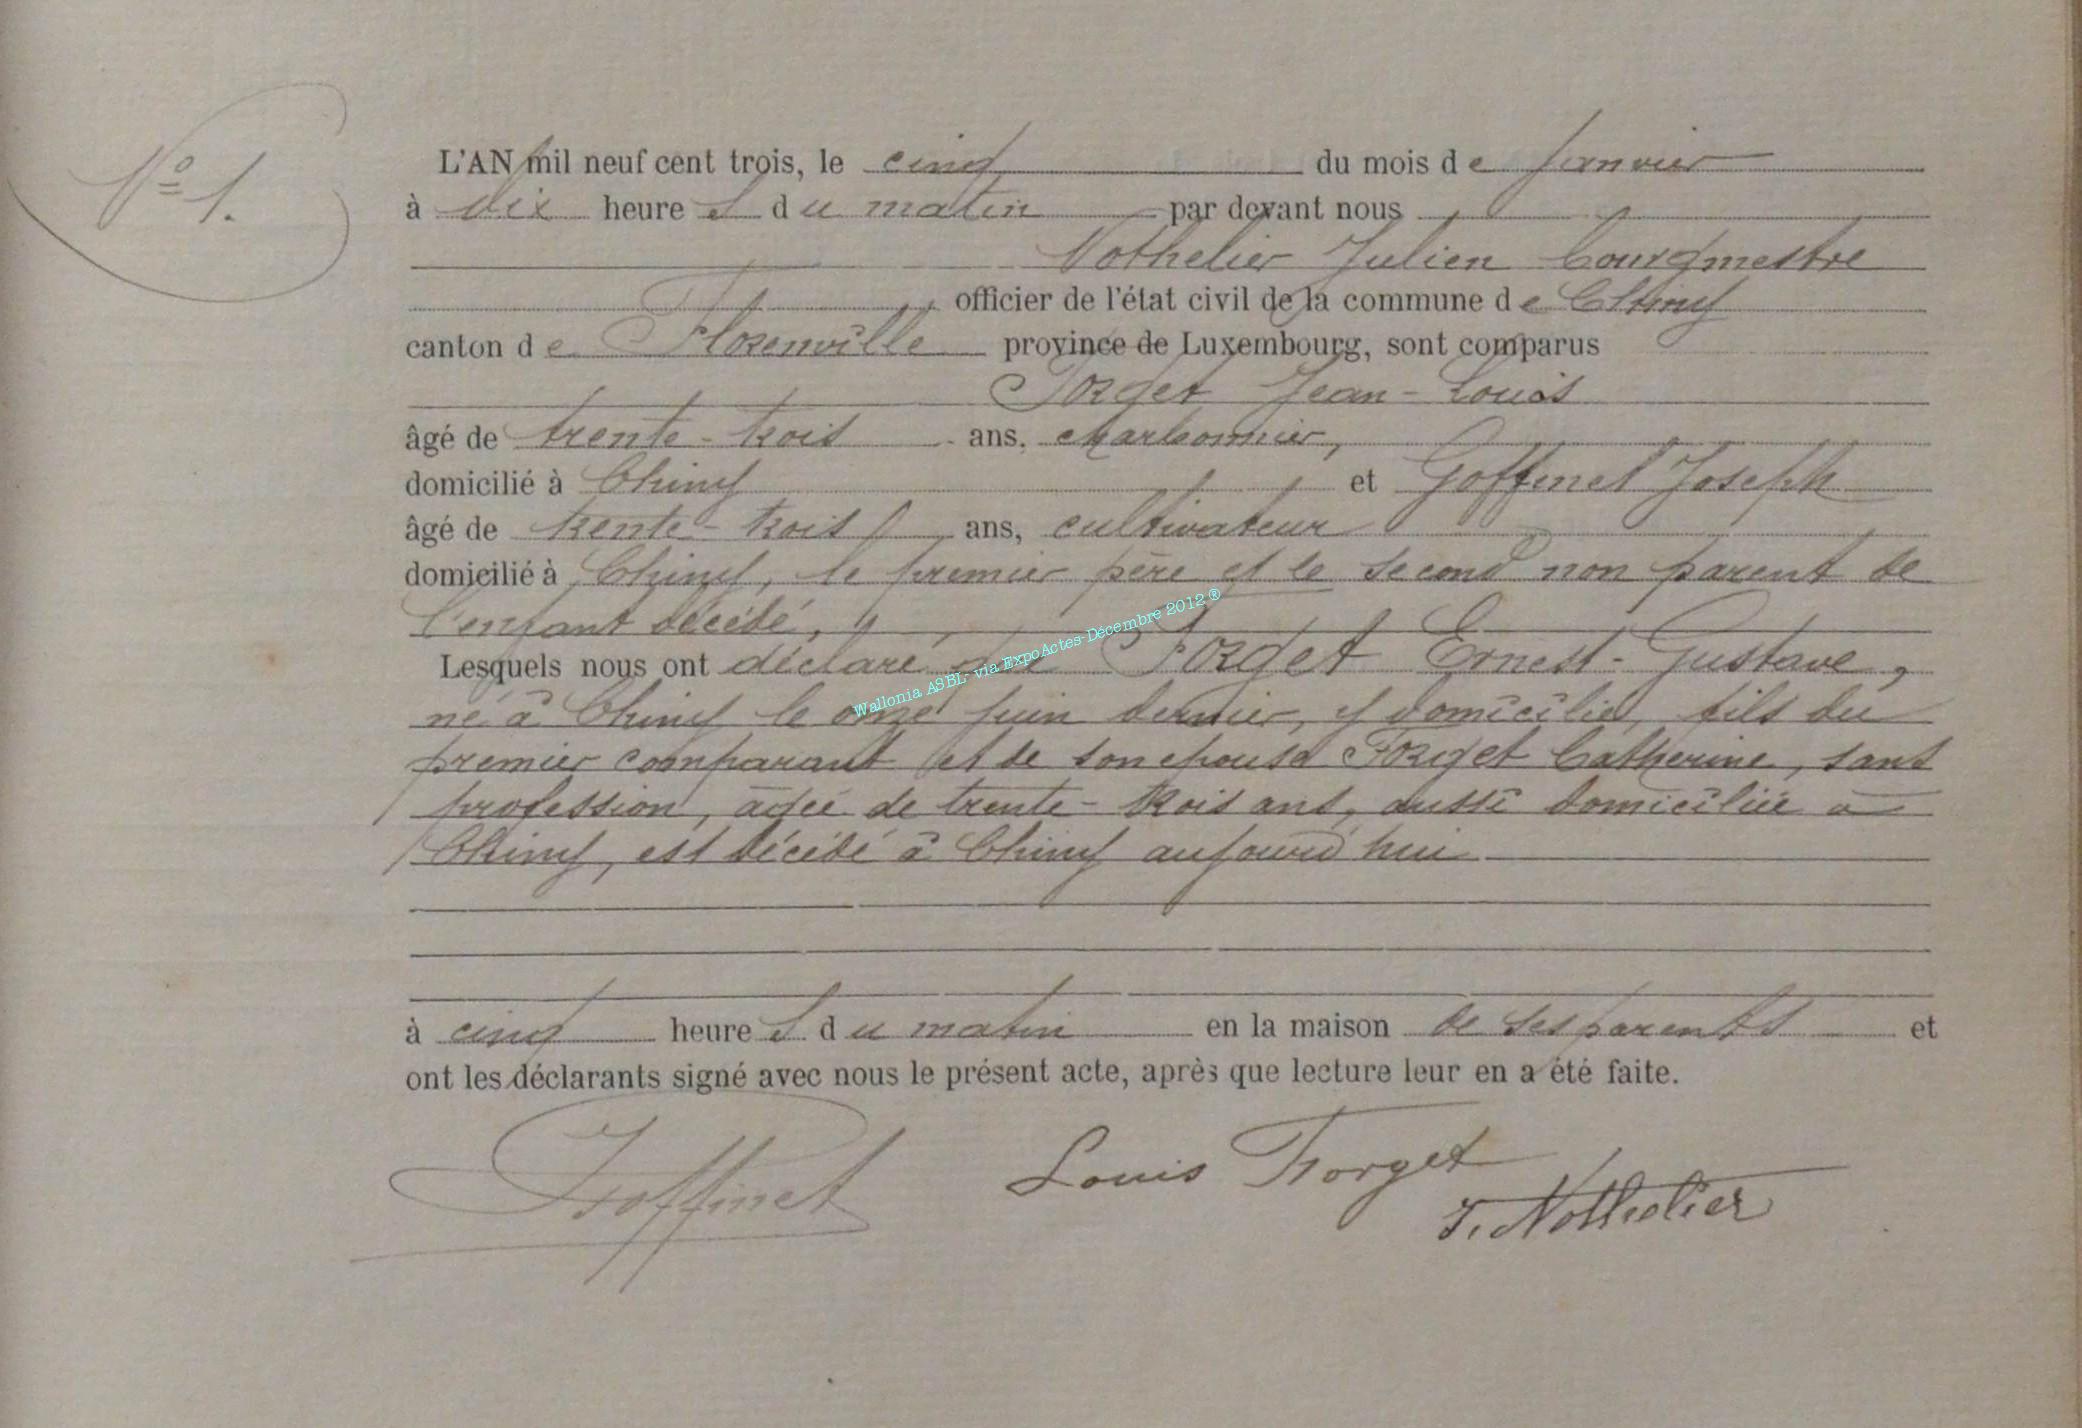 N° 1.
L'AN mil neuf cent trois, le cinq du mois de janvier
à dix heures du matin par devant nous
Nothelier Julien bourgmestre
officier de l'état civil de la commune de Chiny
canton de Florenville province de Luxembourg, sont comparus
Forget Jean-Louis
âgé de trente-trois ans, charbonnier,
domicilié à Chiny et Goffinet Joseph
âgé de trente-trois ans, cultivateur
domicilié à Chiny, le premier père et le second non parent de
l'enfant décédé,
Lesquels nous ont déclaré que Forget Ernest-Gustave,
né à Chiny le onze juin dernier, y domicilié, fils du
premier comparant et de son épouse Forget Catherine, sans
profession, âgée de trente-trois ans, aussi domiciliée à
Chiny, est décédé à Chiny aujourd'hui
à cinq heures du matin en la maison de ses parents et
ont les déclarants signé avec nous le présent acte, après que lecture leur en a été faite.
Goffinet Louis Forget
J. Nothelier
Wallonia ASBL- via ExpoActes-Décembre 2012 ®